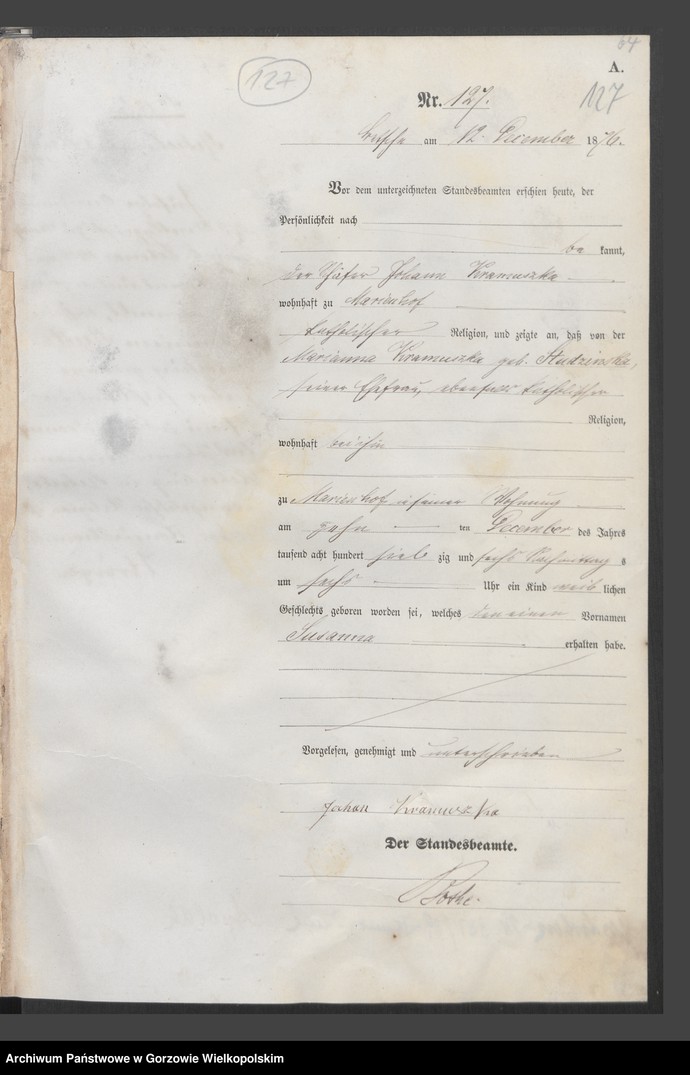 64
A.
127
Nr. 127.
127
Betsche am 12. December 1876.
Vor dem unterzeichneten Standesbeamten erschien heute, der
Persönlichkeit nach
be kannt,
der Schäfer Johann Kramuszka
wohnhaft zu Marienhof
katholischer Religion, und zeigte an, daß von der
Marianna Kramuszka geb. Studzinska,
seiner Ehefrau, ebenfalls katholischer
Religion,
wohnhaft bei ihm
zu Marienhof in seiner Wohnung
am zehn ten December des Jahres
tausend acht hundert sieb zig und sechs Nachmittag s
um sechs Uhr ein Kind weib lichen
Geschlechts geboren worden sei, welches den einen Vornamen
Susanna erhalten habe.
Vorgelesen, genehmigt und unterschrieben
Johan Kramuszka
Der Standesbeamte.
Bothe.
Archiwum Państwowe w Gorzowie Wielkopolskim